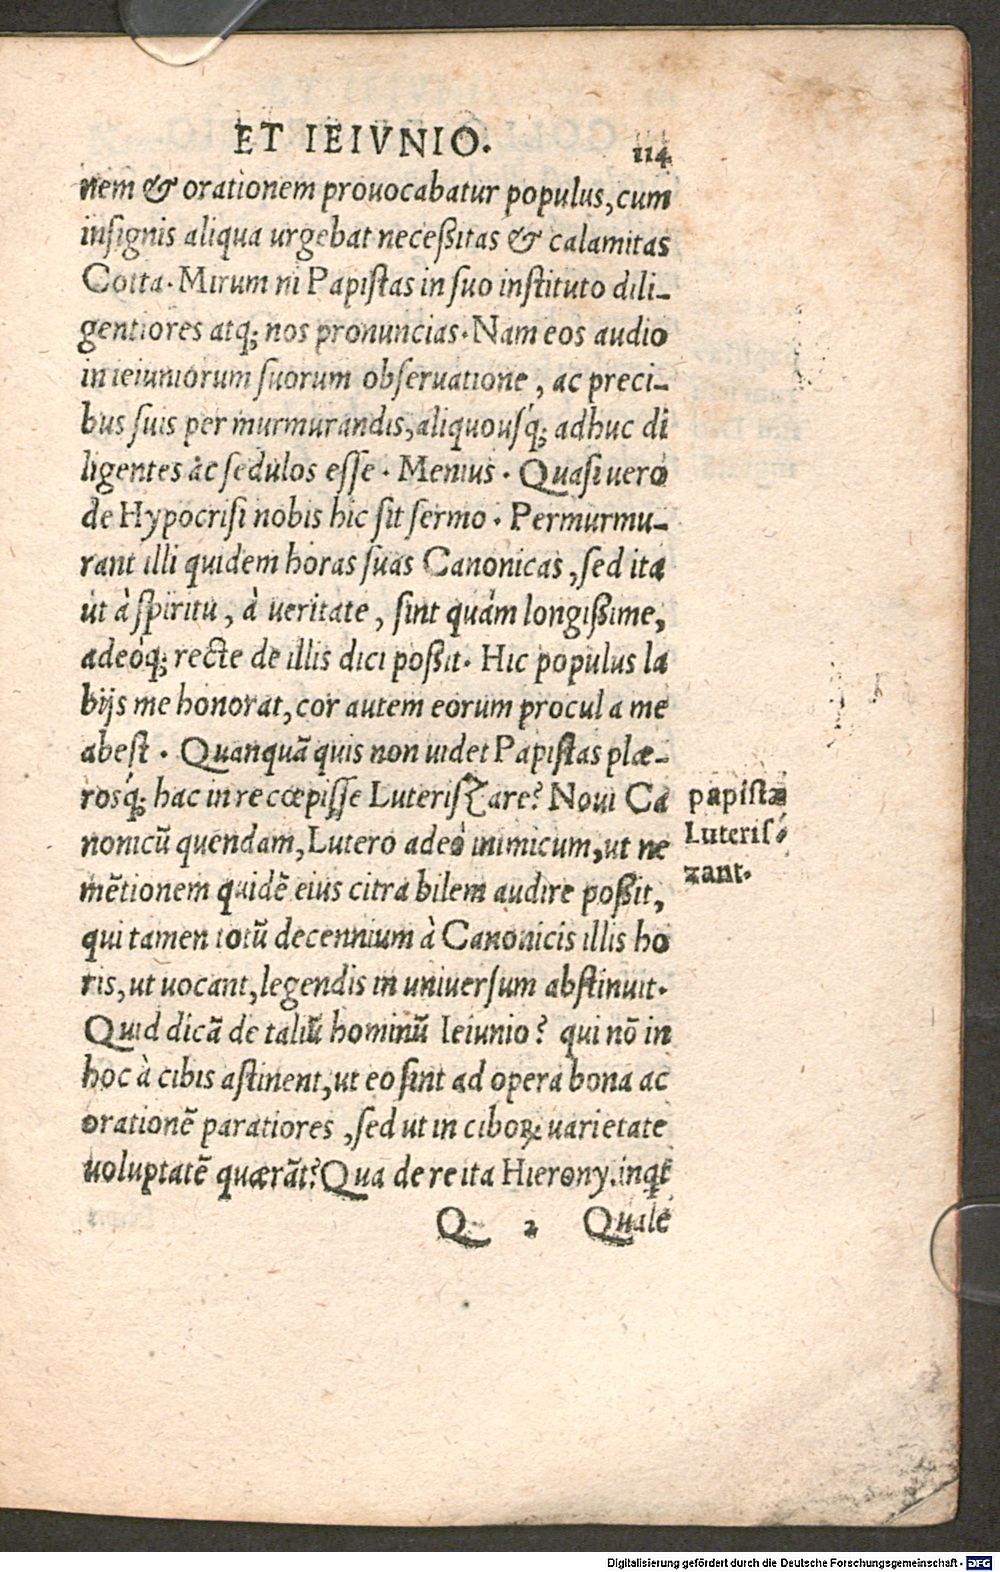 ET IEIVNIO.
114
nem & orationem prouocabatur populus, cum
insignis aliqua urgebat neceßitas & calamitas
Cotta. Mirum ni Papistas in suo instituto dili-
gentiores atq; nos pronuncias. Nam eos audio
in ieiuniorum suorum obseruatione, ac preci-
bus suis permurmurandis, aliquousq́; adhuc di
ligentes ac sedulos esse. Menius. Quasi uero
de Hypocrisi nobis hic sit sermo. Permurmu-
rant illi quidem horas suas Canonicas, sed ita
ut à spiritu, à ueritate, sint quám longißime,
adeóq; recte de illis dici poßit. Hic populus la
bijs me honorat, cor autem eorum procul a me
abest. Quanquã quis non uidet Papistas plæ-
rosq́; hac in re cœpisse Luteriszare? Noui Ca
nonicũ quendam, Lutero adeò inimicum, ut ne
mẽtionem quidẽ eius citra bilem audire poßit,
qui tamen totũ decennium à Canonicis illis ho
ris, ut uocant, legendis in uniuersum abstinuit.
Quid dicã de taliũ hominũ Ieiunio? qui nõ in
hoc à cibis astinent, ut eo sint ad opera bona ac
orationẽ paratiores, sed ut in ciboꝝ uarietate
uoluptatẽ quærãt? Qua de re ita Hierony. inq̃t
Q 2 Quale
papistæ
Luteris-
zant.
Digitalisierung gefördert durch die Deutsche Forschungsgemeinschaft - DFG